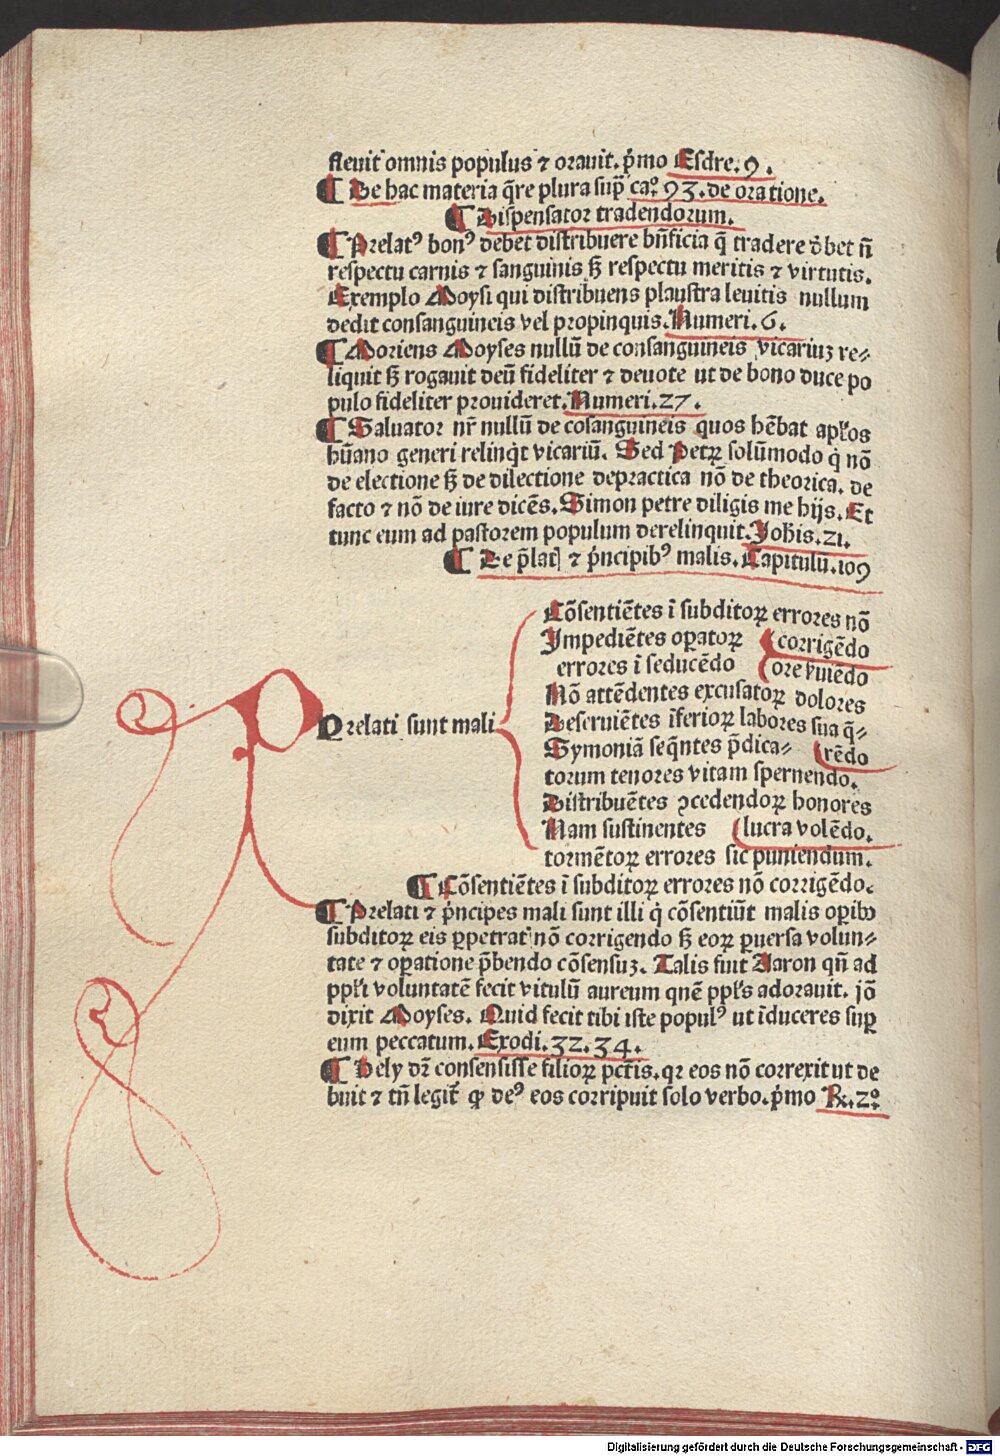 fleuit omnis populus ⁊ orauit. p̄mo Esdre. 9.
¶ De hac materia q̄re plura sup̄ ca.° 93. de oratione.
¶ Dispensator tradendorum.
¶ Prelat⁹ bon⁹ debet distribuere bn̄ficia q̄ tradere dʒbet nō
respectu carnis ⁊ sanguinis sꝫ respectu meritis ⁊ virtutis.
Exemplo Moysi qui distribuens plaustra leuitis nullum
dedit consanguineis vel propinquis. Numeri. 6.
¶ Moriens Moyses nullū de consanguineis vicariuꝫ re⸗
liquit sꝫ rogauit deū fideliter ⁊ deuote ut de bono duce po
pulo fideliter prouideret. Numeri. 27.
¶ Saluator nr̄ nullū de cōsanguineis quos hēbat apl̄os
hūano generi relinq̇t vicariū. Sed Petrꝫ solūmodo q̇ nō
de electione sꝫ de dilectione depractica nō de theorica. de
facto ⁊ nō de iure dicēs. Simon petre diligis me hijs. Et
tunc eum ad pastorem populum derelinquit. Joh̄is. 21.
¶ De p̄lat̄ ⁊ p̄ncipib⁹ malis. Capitulū. 109
Cōsentiētes ī subditoꝝ errores nō
Impediētes oꝑatoꝝ (corrigēdo
errores ī seducēdo (ore
Nō attēdentes excusatoꝝ dolores
Deseruiētes īferioꝝ labores sua q̄⸗
Prelati sunt mali
Symoniā seq̄ntes p̄dica⸗ (rēdo
torum tenores vitam spernendo.
Distribuētes ꝯcedendoꝝ honores
Nam sustinentes (lucra volēdo.
tormētoꝝ errores sic puniendum.
¶ Cōsentiētes ī subditoꝝ errores nō corrigēdo.
¶ Prelati ⁊ p̄ncipes mali sunt illi q̇ cōsentiūt malis oꝑibꝰ
subditoꝝ eis ꝑpetrat̄ nō corrigendo sꝫ eoꝝ ꝑuersa volun⸗
tate ⁊ oꝑatione p̄bendo cōsensuꝫ. Talis fuit Aaron qn̄ ad
ppl̄i voluntatē fecit vitulū aureum quē ppl̄s adorauit. jō
dixit Moyses. Quid fecit tibi iste popul⁹ ut īduceres suꝑ
eum peccatum. Exodi. 32. 34.
¶ Hely dr̄ consensisse filioꝝ pct̄is. qꝛ eos nō correxit ut de
buit ⁊ tn̄ legit̄ ꝙ de⁹ eos corripuit solo verbo. p̄mo Rꝝ. 2°.
Digitalisierung gefördert durch die Deutsche Forschungsgemeinschaft - DFG